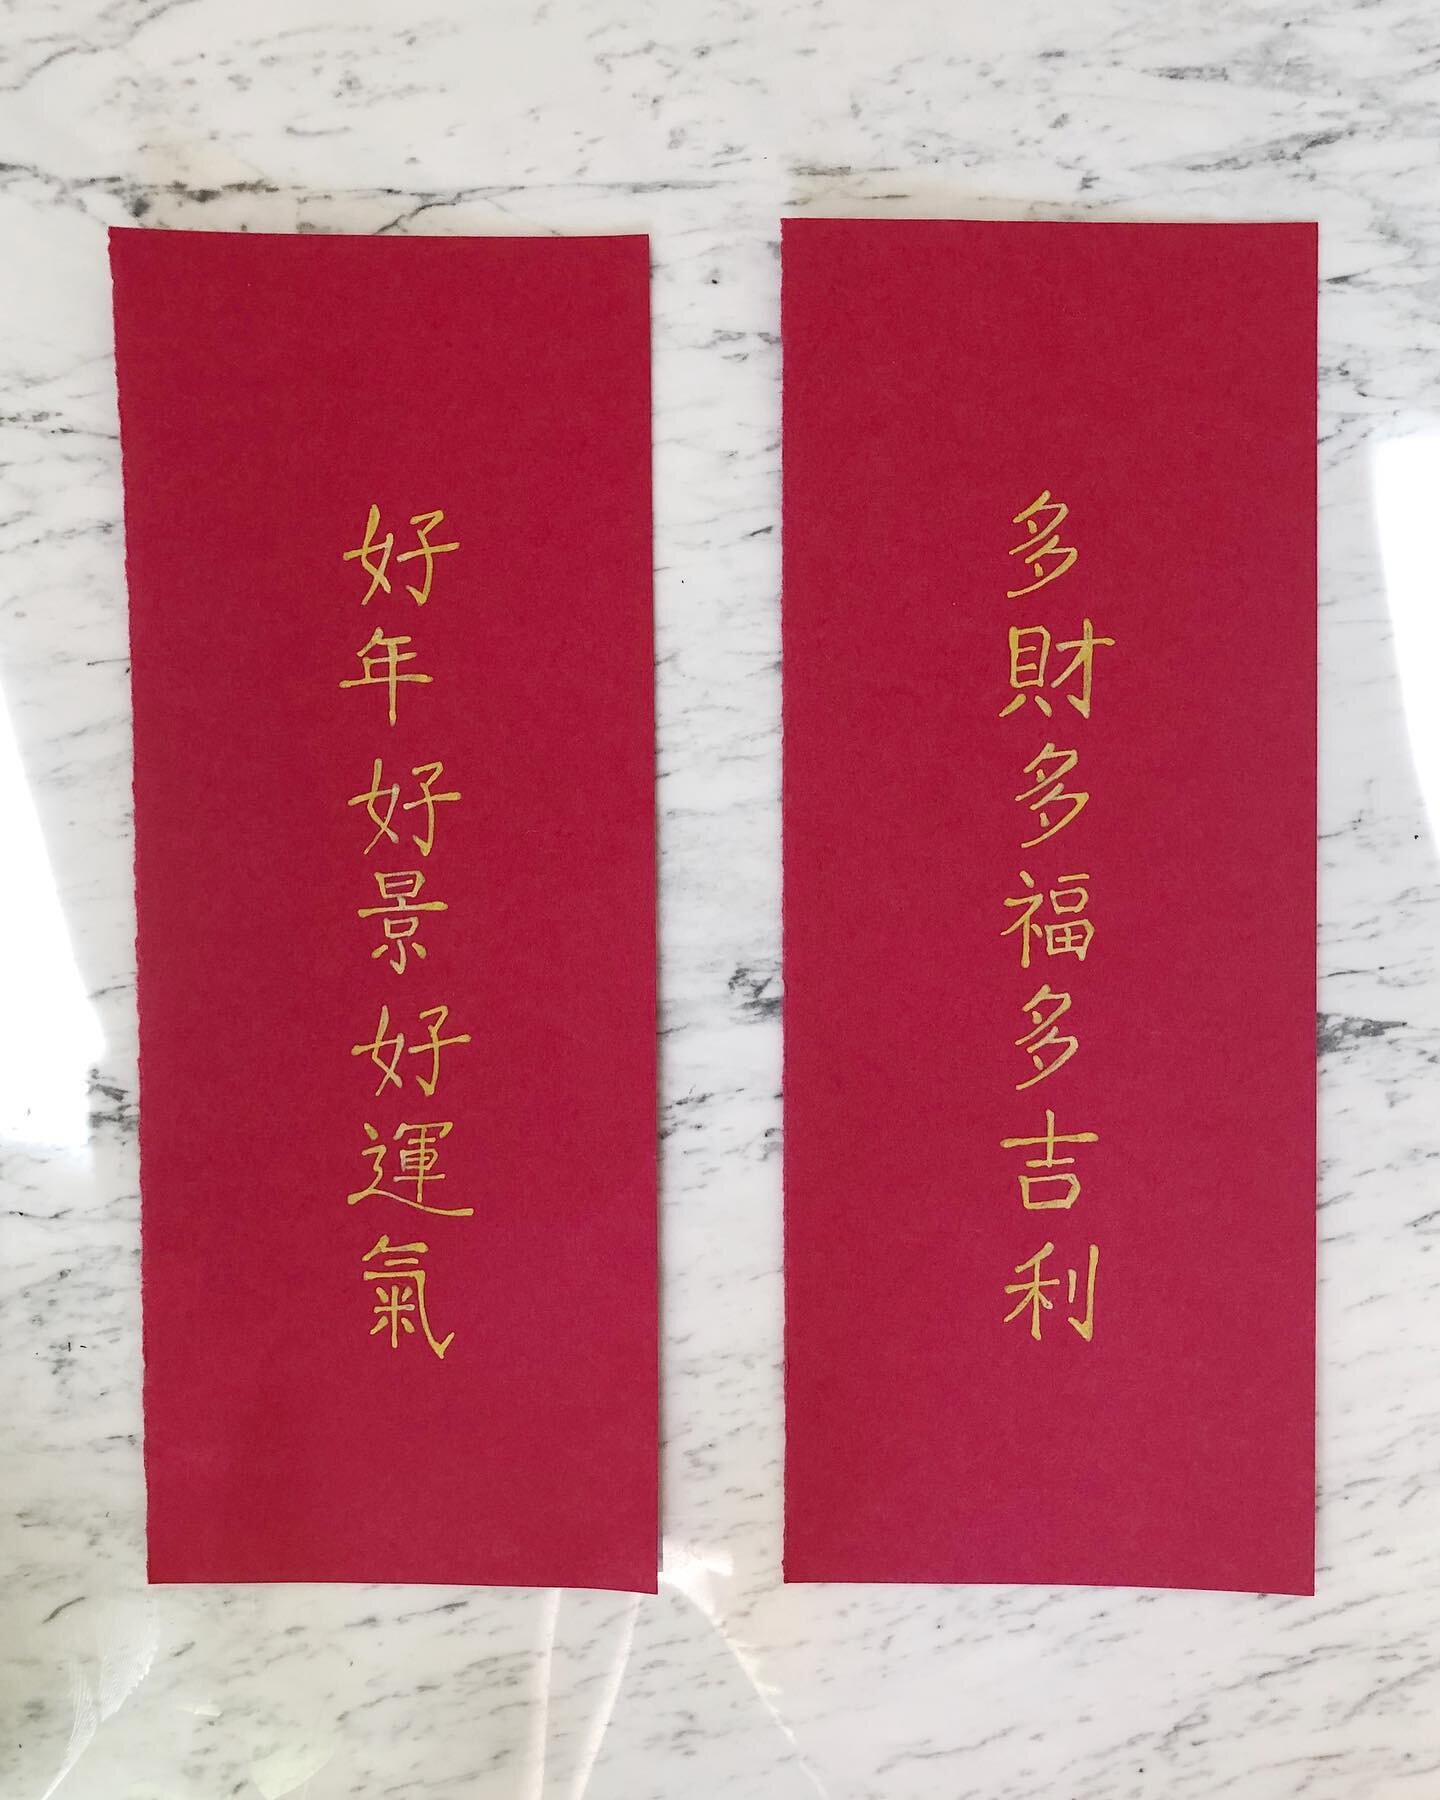 好年好景好運氣
多財多福多吉利